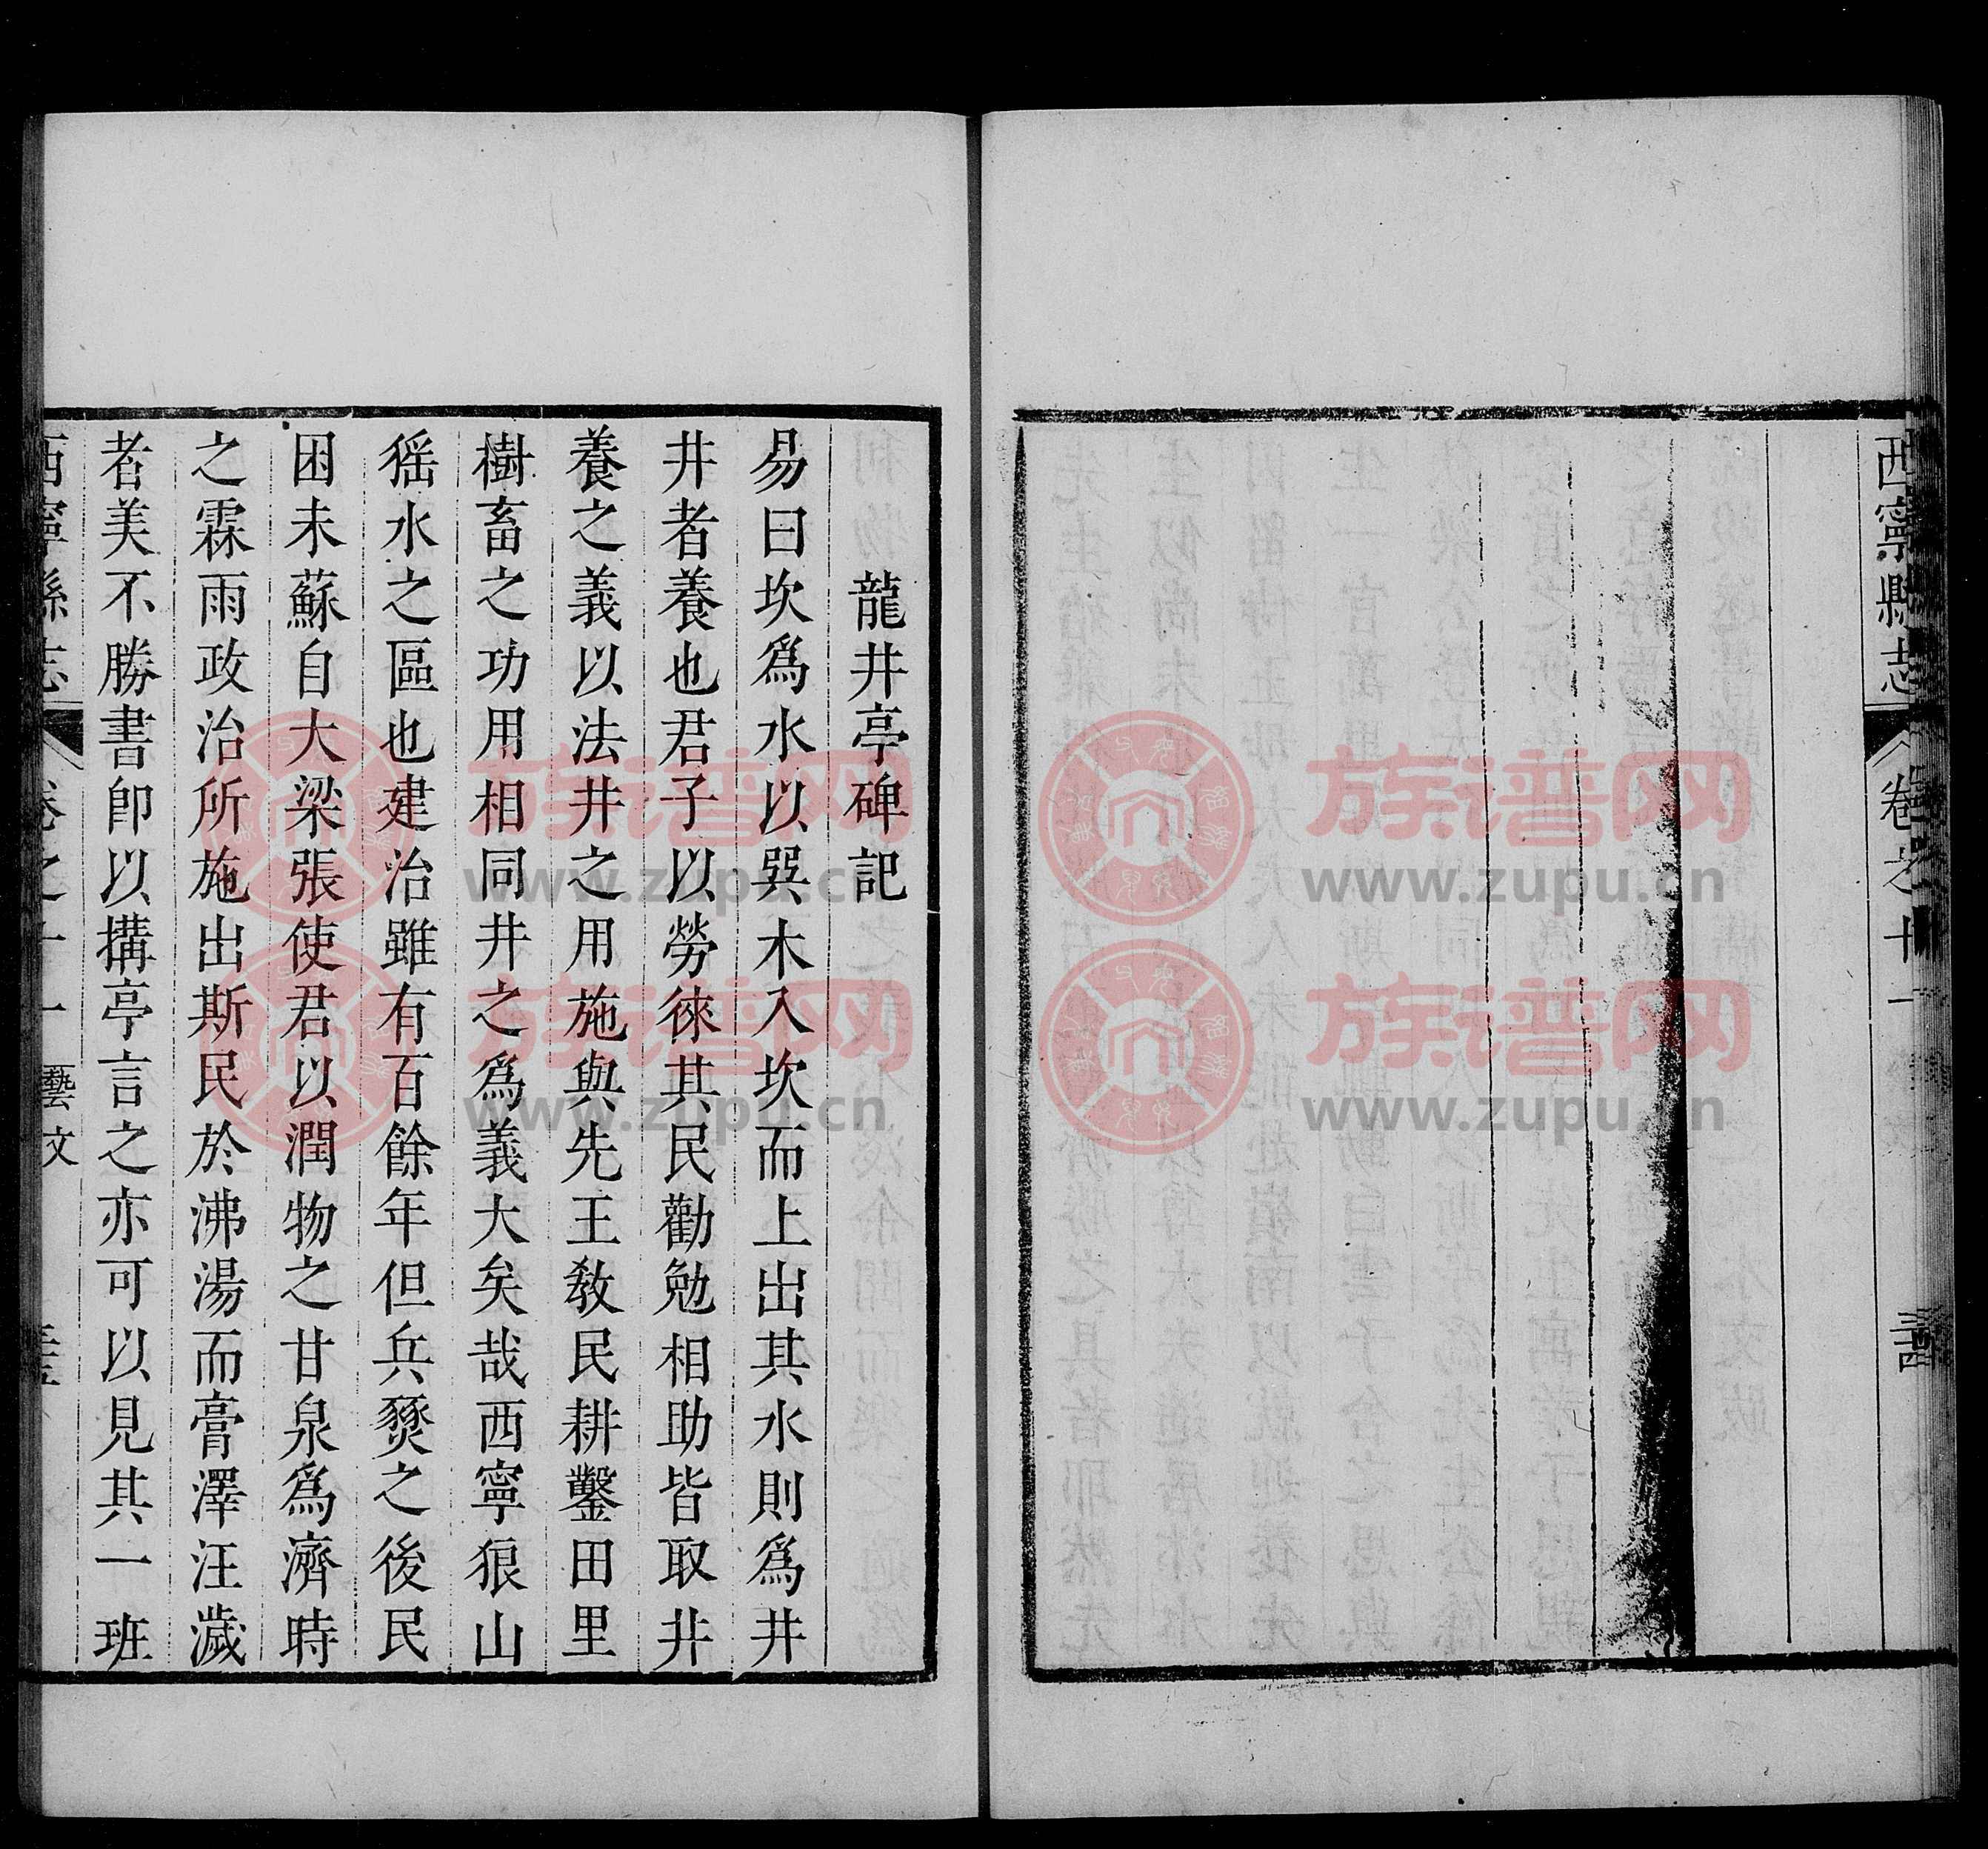 西寧縣志 卷之十一
龍井亭碑記
易曰坎爲水以巽木入坎而上出其水則爲井
井者養也君子以勞徠其民勸勉相助皆取井
養之義以法井之用施與先王教民耕鑿田里
樹畜之功用相同井之爲義大矣哉西寧狼山
猺水之區也建治雖有百餘年但兵燹之後民
困未蘇自大梁張使君以潤物之甘泉爲濟時
之霖雨政治所施出斯民於沸湯而膏澤汪濊
者美不勝書卽以搆亭言之亦可以見其一班
西寧縣志 卷之十一 藝文
族谱网
www.zupu.cn
族谱网
www.zupu.cn
族谱网
www.zupu.cn
族谱网
www.zupu.cn